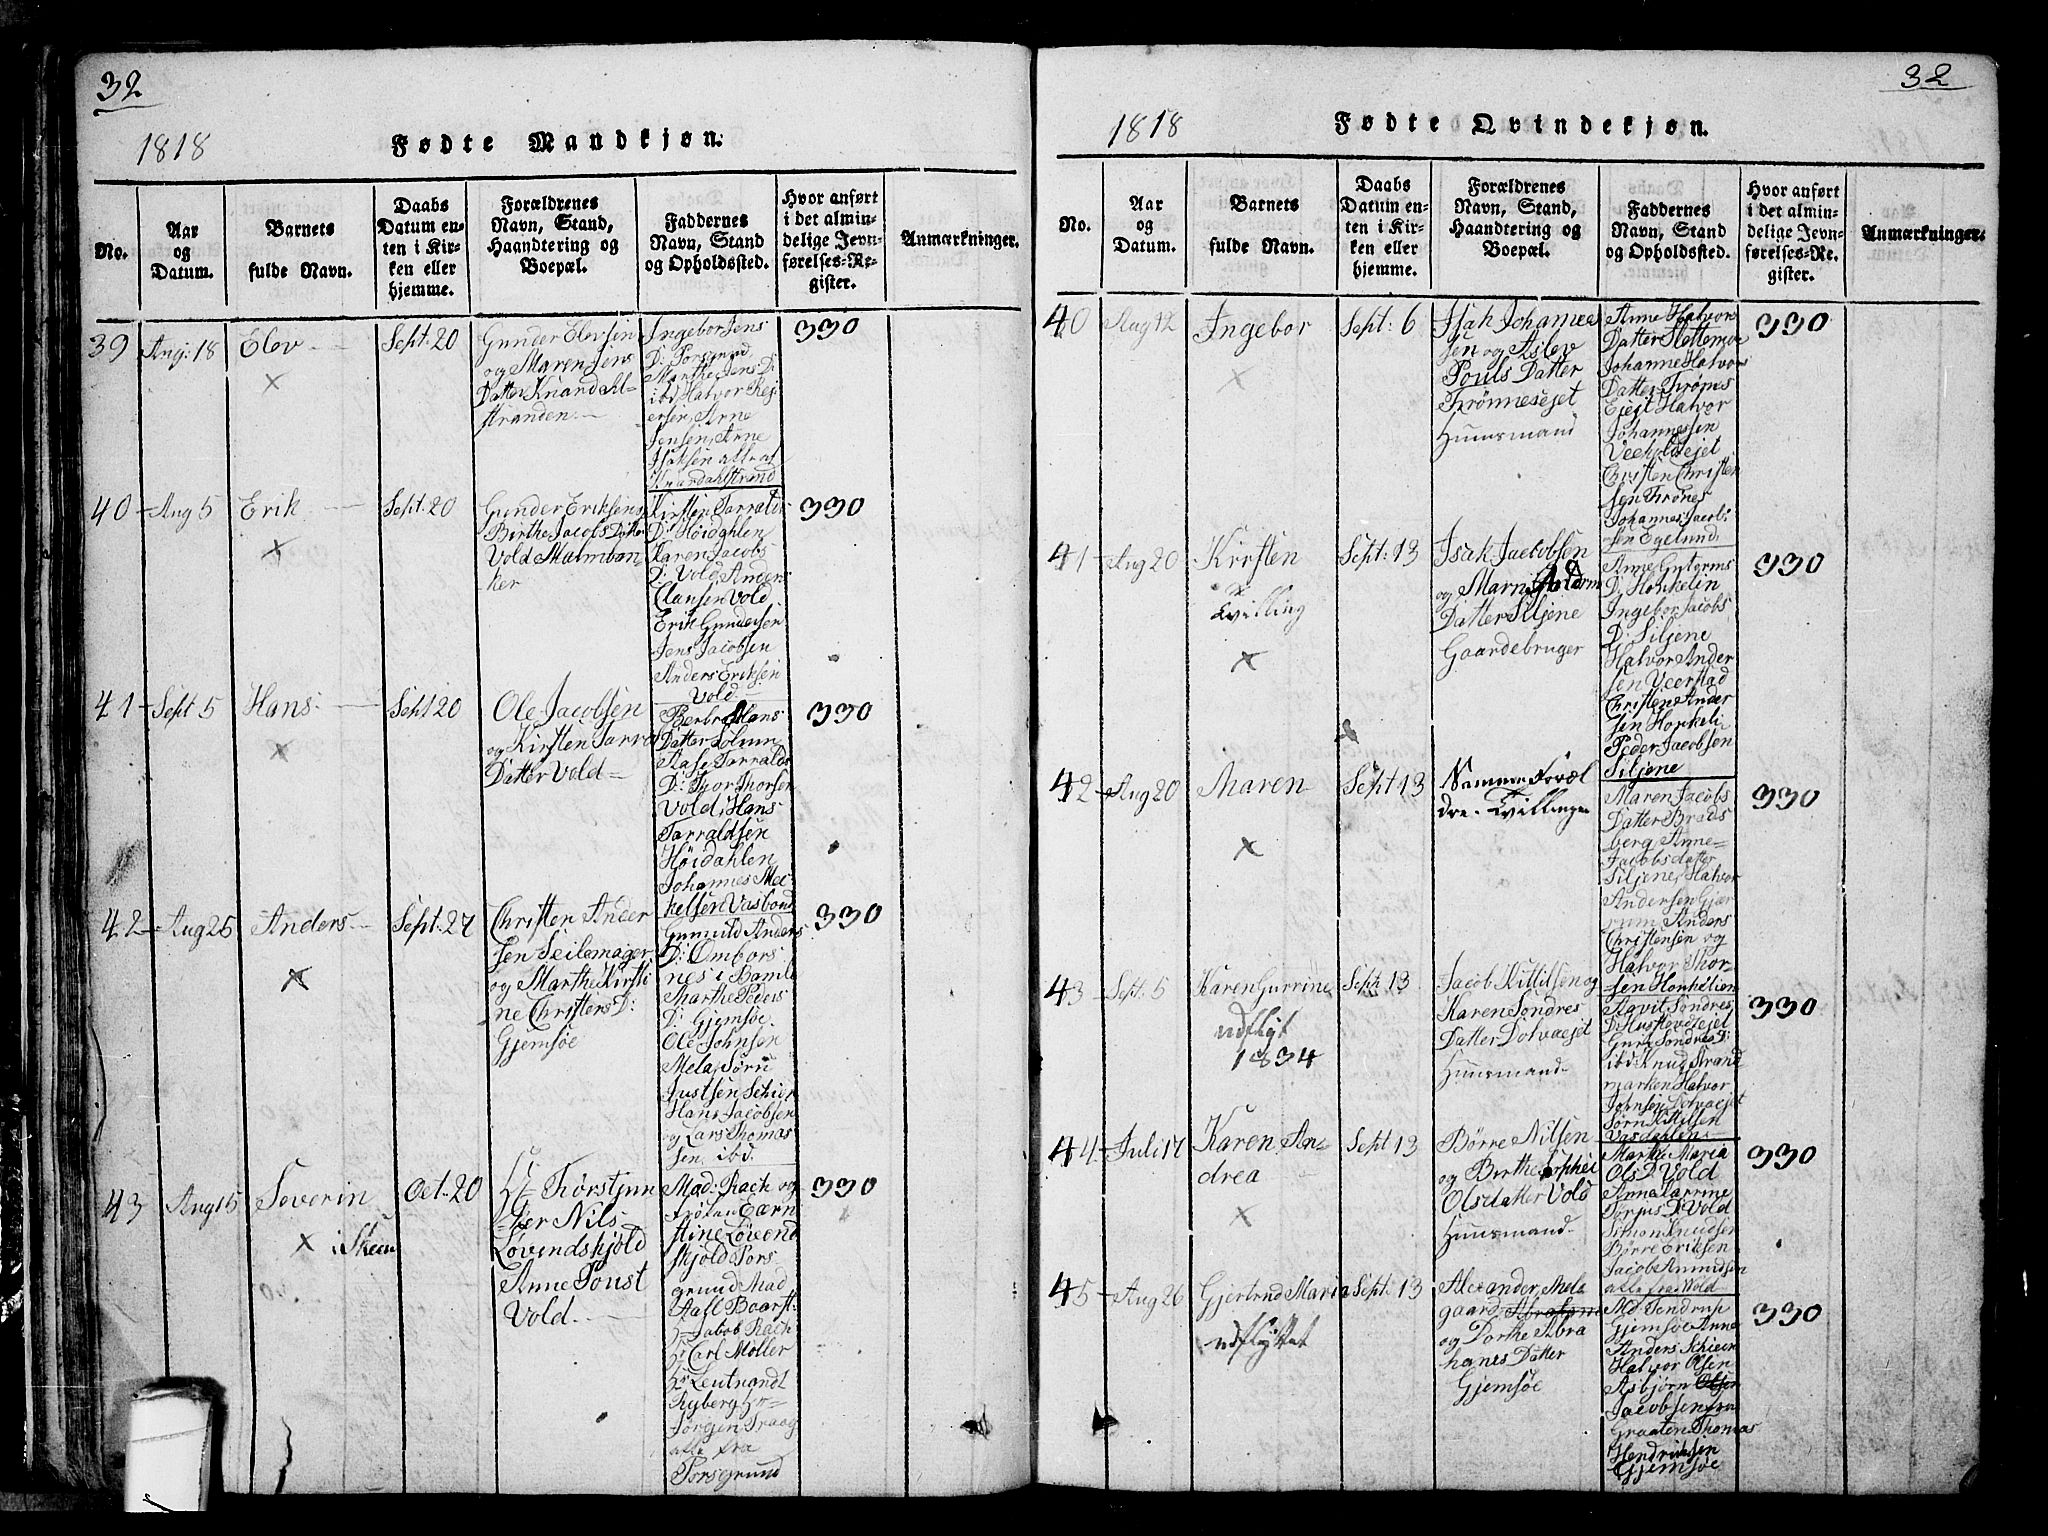 32
1818
Fødte Mandkjøn.
No.
Aar
og
Datum.
Barnets
fulde Navn.
Daabs
Datum en-
ten i Kir-
ken eller
hjemme.
Forældrenes
Navn, Stand,
Haandtering og
Boepæl.
Faddernes
Navn, Stand
og Opholdssted.
Hvor anført
i det almin-
delige Jevn-
førelses-Re-
gister.
Anmærkninger.
39
Aug: 18
Elev
Sept. 20
Gunder Elevsen
og Maren Jens
Datter Knardahl-
stranden.
Ingebor Jens
D: Porsgrund
Marthe Jens D:
ibd Halvor Rej-
ersen, Arne
Jensen, Arne
Isaksen alle af
Knardahlstrand
330
40
Aug 5
Erik
Sept. 20
Gunder Eriksens
Birthe Jacobs Datter
Vold Malmban-
ker
Kirsten Tarralds
D: Höidahlen
Karen Jacobs
D: Vold Anders
Clausen Vold
Erik Gundersen
Jens Jacobsen
Anders Eriksen
Vold
330
41
Sept 5
Hans
Sept 20
Ole Jacobsen
og Kirsten Tarra
Datter Vold
Berbr Hans
Datter Solum
Aase Tarralds
D: Thor Thorsen
Vold, Hans
Tarraldsen
Höidahlen
Johannes Mec-
kelsen Vasbond
330
42
Aug 25
Anders
Sept. 27
Christen Ander
sen Seilemager
og Marthe Kirsti
ne Christens D:
Gjemsøe
Gunnild Anders
D: Ombors
nes i Bamle
Marthe Peders
D: Gjemsøe
Ole Johnsen
Mela, Sørn
Justsen Schier
Hans Jacobsen
og Lars Thomas
sen, ibd.
330
43
Aug 15
Severin
i Skeen
Oct. 20
Hr Torstjun
ker Nils
Løvendskjold
Anne Poust
Vold.
Mad: Rach og
frøken Caern
Stine Løvend
skjold Pors
grund Mad
Aall Boarst
Hr Jabob Rach
Hr Carl Møller
Hr Leutnandt
Ryberg Hr
Jørgen Traag
alle fra
Porsegrund
330
32
1818
Fødte Qvindekjøn.
No.
Aar
og
Datum.
Barnets
fulde Navn.
Daabs
Datum en-
ten i Kir-
ken eller
hjemme.
Forældrenes
Navn, Stand,
Haandtering og
Boepæl.
Faddernes
Navn, Stand
og Opholdssted.
Hvor anført
i det almin-
delige Jevn-
førelses-Re-
gister.
Anmærkninger.
40
Aug 12
Ingebor
Sept: 6
Isak Johannes
sen og Aslev
Pouls Datter
Trønneseiet
Huusmand
Anne Halvors
Datter Slettemoe
Johanne Halvors
Datter Trømes
Ejejt Halvor
Johannessen
Veeholtejet
Christen Christen
sen Trønes
Johannes Jacob
sen Egelund
330
41
Aug 20
Kirsten
Tvilling
Sept: 13
Isak Jacobsen
og Marn Anders
Datter Siljene
Gaardebruger
Anne Gutorms
D: Honkelin
Ingebor Jacobs
D: Siljene
Halvor Ander
sen Veerstad
Christen Ander
sen Honkeli
Peder Jacobsen
Siljene
330
42
Aug 20
Maren
Sept 13
Samme Foræl
dre. Tvillinger
Maren Jacobs
Datter Brads
berg Anne
Jacobsdatter
Siljene, Halvor
Andersen Gjær
rum Anders
Christensen og
Halvor Thor-
sen Honkelien
330
43
Sept. 5
Karen Gurrine
udflyt
1834
Sept 13
Jacob Kittilsen og
Karen Sondres
Datter Dolvaejet
Huusmand
Aavit Sondres
D: Hustovdejet
Guro Sondres D:
ibd: Knud Strand
marken Halvor
Johnsen Dolvaejet
Sørn Kittilsen
Vasdahlen
330
44
Juli 17
Karen An-
drea
Sept 13
Börre Nilsen
og Birthe Sophei
Olsdatter Vold
Huusmand
Marthe Maria
Ols D: Vold
Anna Catrine
Torjus D: Vold
Simon Knudsen
Börre Eriksen
Jacob Amundsen
alle fra Vold
330
45
Aug 26
Gjertrud Maria
udflyttet
Sept: 13
Alexander Mela
gaard Abraham
og Dorthe Abra
hams Datter
Gjemsøe
Md. Tendrup
Gjemsøe Anne
Anders Schieen
Halvor Olsen
Asbjørn Olsen
Jacobsen fra
Graaten Thomas
Hendriksen
Gjemsøe
330